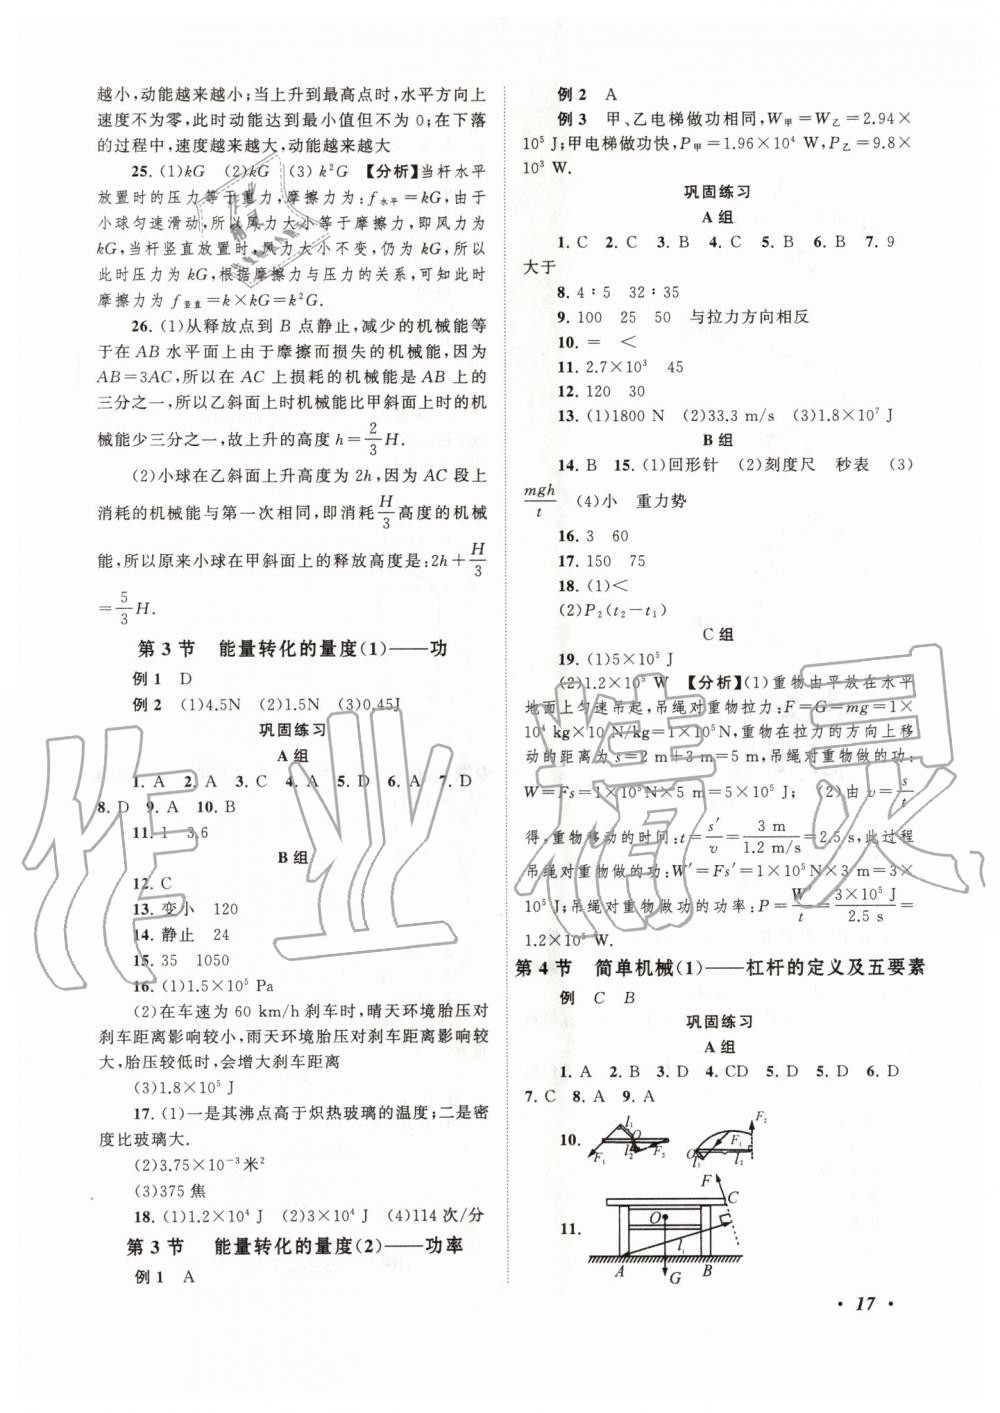 越小,动能越来越小;当上升到最高点时,水平方向上
速度不为零,此时动能达到最小值但不为 0;在下落
的过程中,速度越来越大,动能越来越大
25. (1)kG (2)kG (3)k²G 【分析】当杆水平
放置时的压力等于重力,摩擦力为:f水平=kG,由于
小球匀速滑动,所以风力大小等于摩擦力,即风力为
kG,当杆竖直放置时,风力大小不变,仍为 kG,所以
此时压力为 kG,根据摩擦力与压力的关系,可知此时
摩擦力为 f竖直=k×kG=k²G.
26. (1)从释放点到 B 点静止,减少的机械能等
于在 AB 水平面上由于摩擦而损失的机械能,因为
AB=3AC,所以在 AC 上损耗的机械能是 AB 上的
三分之一,所以乙斜面上时机械能比甲斜面上的机
械能少三分之一,故上升的高度 h=2/3H.
(2)小球在乙斜面上升高度为 2h,因为 AC 段上
消耗的机械能与第一次相同,即消耗H/3高度的机械
能,所以原来小球在甲斜面上的释放高度是:2h+H/3
=5/3H.
第 3 节 能量转化的量度(1)——功
例 1 D
例 2 (1)4.5N (2)1.5N (3)0.45J
巩固练习
A 组
1. A 2. A 3. C 4. A 5. D 6. A 7. D
8. D 9. A 10. B
11. 1 3.6
B 组
12. C
13. 变小 120
14. 静止 24
15. 35 1050
16. (1)1.5×10⁵ Pa
(2)在车速为 60 km/h 刹车时,晴天环境胎压对
刹车距离影响较小,雨天环境胎压对刹车距离影响较
大,胎压较低时,会增大刹车距离
(3)1.8×10⁵ J
17. (1)一是其沸点高于炽热玻璃的温度;二是密
度比玻璃大.
(2)3.75×10⁻³米²
(3)375 焦
18. (1)1.2×10⁴ J (2)3×10⁴ J (4)114 次/分
第 3 节 能量转化的量度(2)——功率
例 1 A
例 2 A
例 3 甲、乙电梯做功相同,W甲=W乙=2.94×
10⁵ J;甲电梯做功快,P甲=1.96×10⁴ W,P乙=9.8×
10³ W.
巩固练习
A 组
1. C 2. C 3. B 4. C 5. B 6. B 7. 9
大于
8. 4∶5 32∶35
9. 100 25 50 与拉力方向相反
10. = <
11. 2.7×10³ 45
12. 120 30
13. (1)1800 N (2)33.3 m/s (3)1.8×10⁷ J
B 组
14. B 15. (1)回形针 (2)刻度尺 秒表 (3)
mgh/t (4)小 重力势
16. 3 60
17. 150 75
18. (1)<
(2)P₂(t₂-t₁)
C 组
19. (1)5×10⁵ J
(2)1.2×10⁵ W 【分析】(1)重物由平放在水平
地面上匀速吊起,吊绳对重物拉力:F=G=mg=1×
10⁴ kg×10 N/kg=1×10⁵N,重物在拉力的方向上移
动的距离为 s=2 m+3 m=5 m,吊绳对重物做的功:
W=Fs=1×10⁵N×5 m=5×10⁵ J; (2)由 v=s/t
得,重物移动的时间:t=s′/v=3 m/1.2 m/s=2.5 s,此过程
吊绳对重物做的功:W′=Fs′=1×10⁵N×3 m=3×
10⁵ J;吊绳对重物做功的功率:P=W′/t=3×10⁵ J/2.5 s=
1.2×10⁵ W.
第 4 节 简单机械(1)——杠杆的定义及五要素
例 C B
巩固练习
A 组
1. A 2. B 3. D 4. CD 5. D 6. D
7. C 8. A 9. A
10. l₁ O l₂ F₁ F₂ F₂ F₁ O l₁ l₂
11. F C O l₁ A G B
· 17 ·
作业精灵